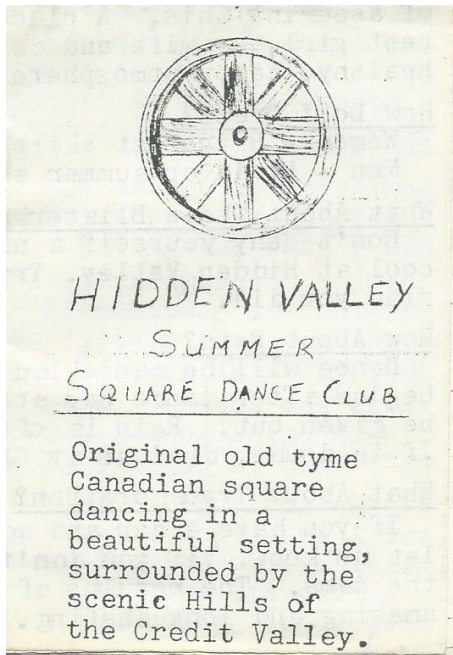 HIDDEN VALLEY
SUMMER
SQUARE DANCE CLUB
Original old tyme
Canadian square
dancing in a
beautiful setting,
surrounded by the
scenic Hills of
the Credit Valley.